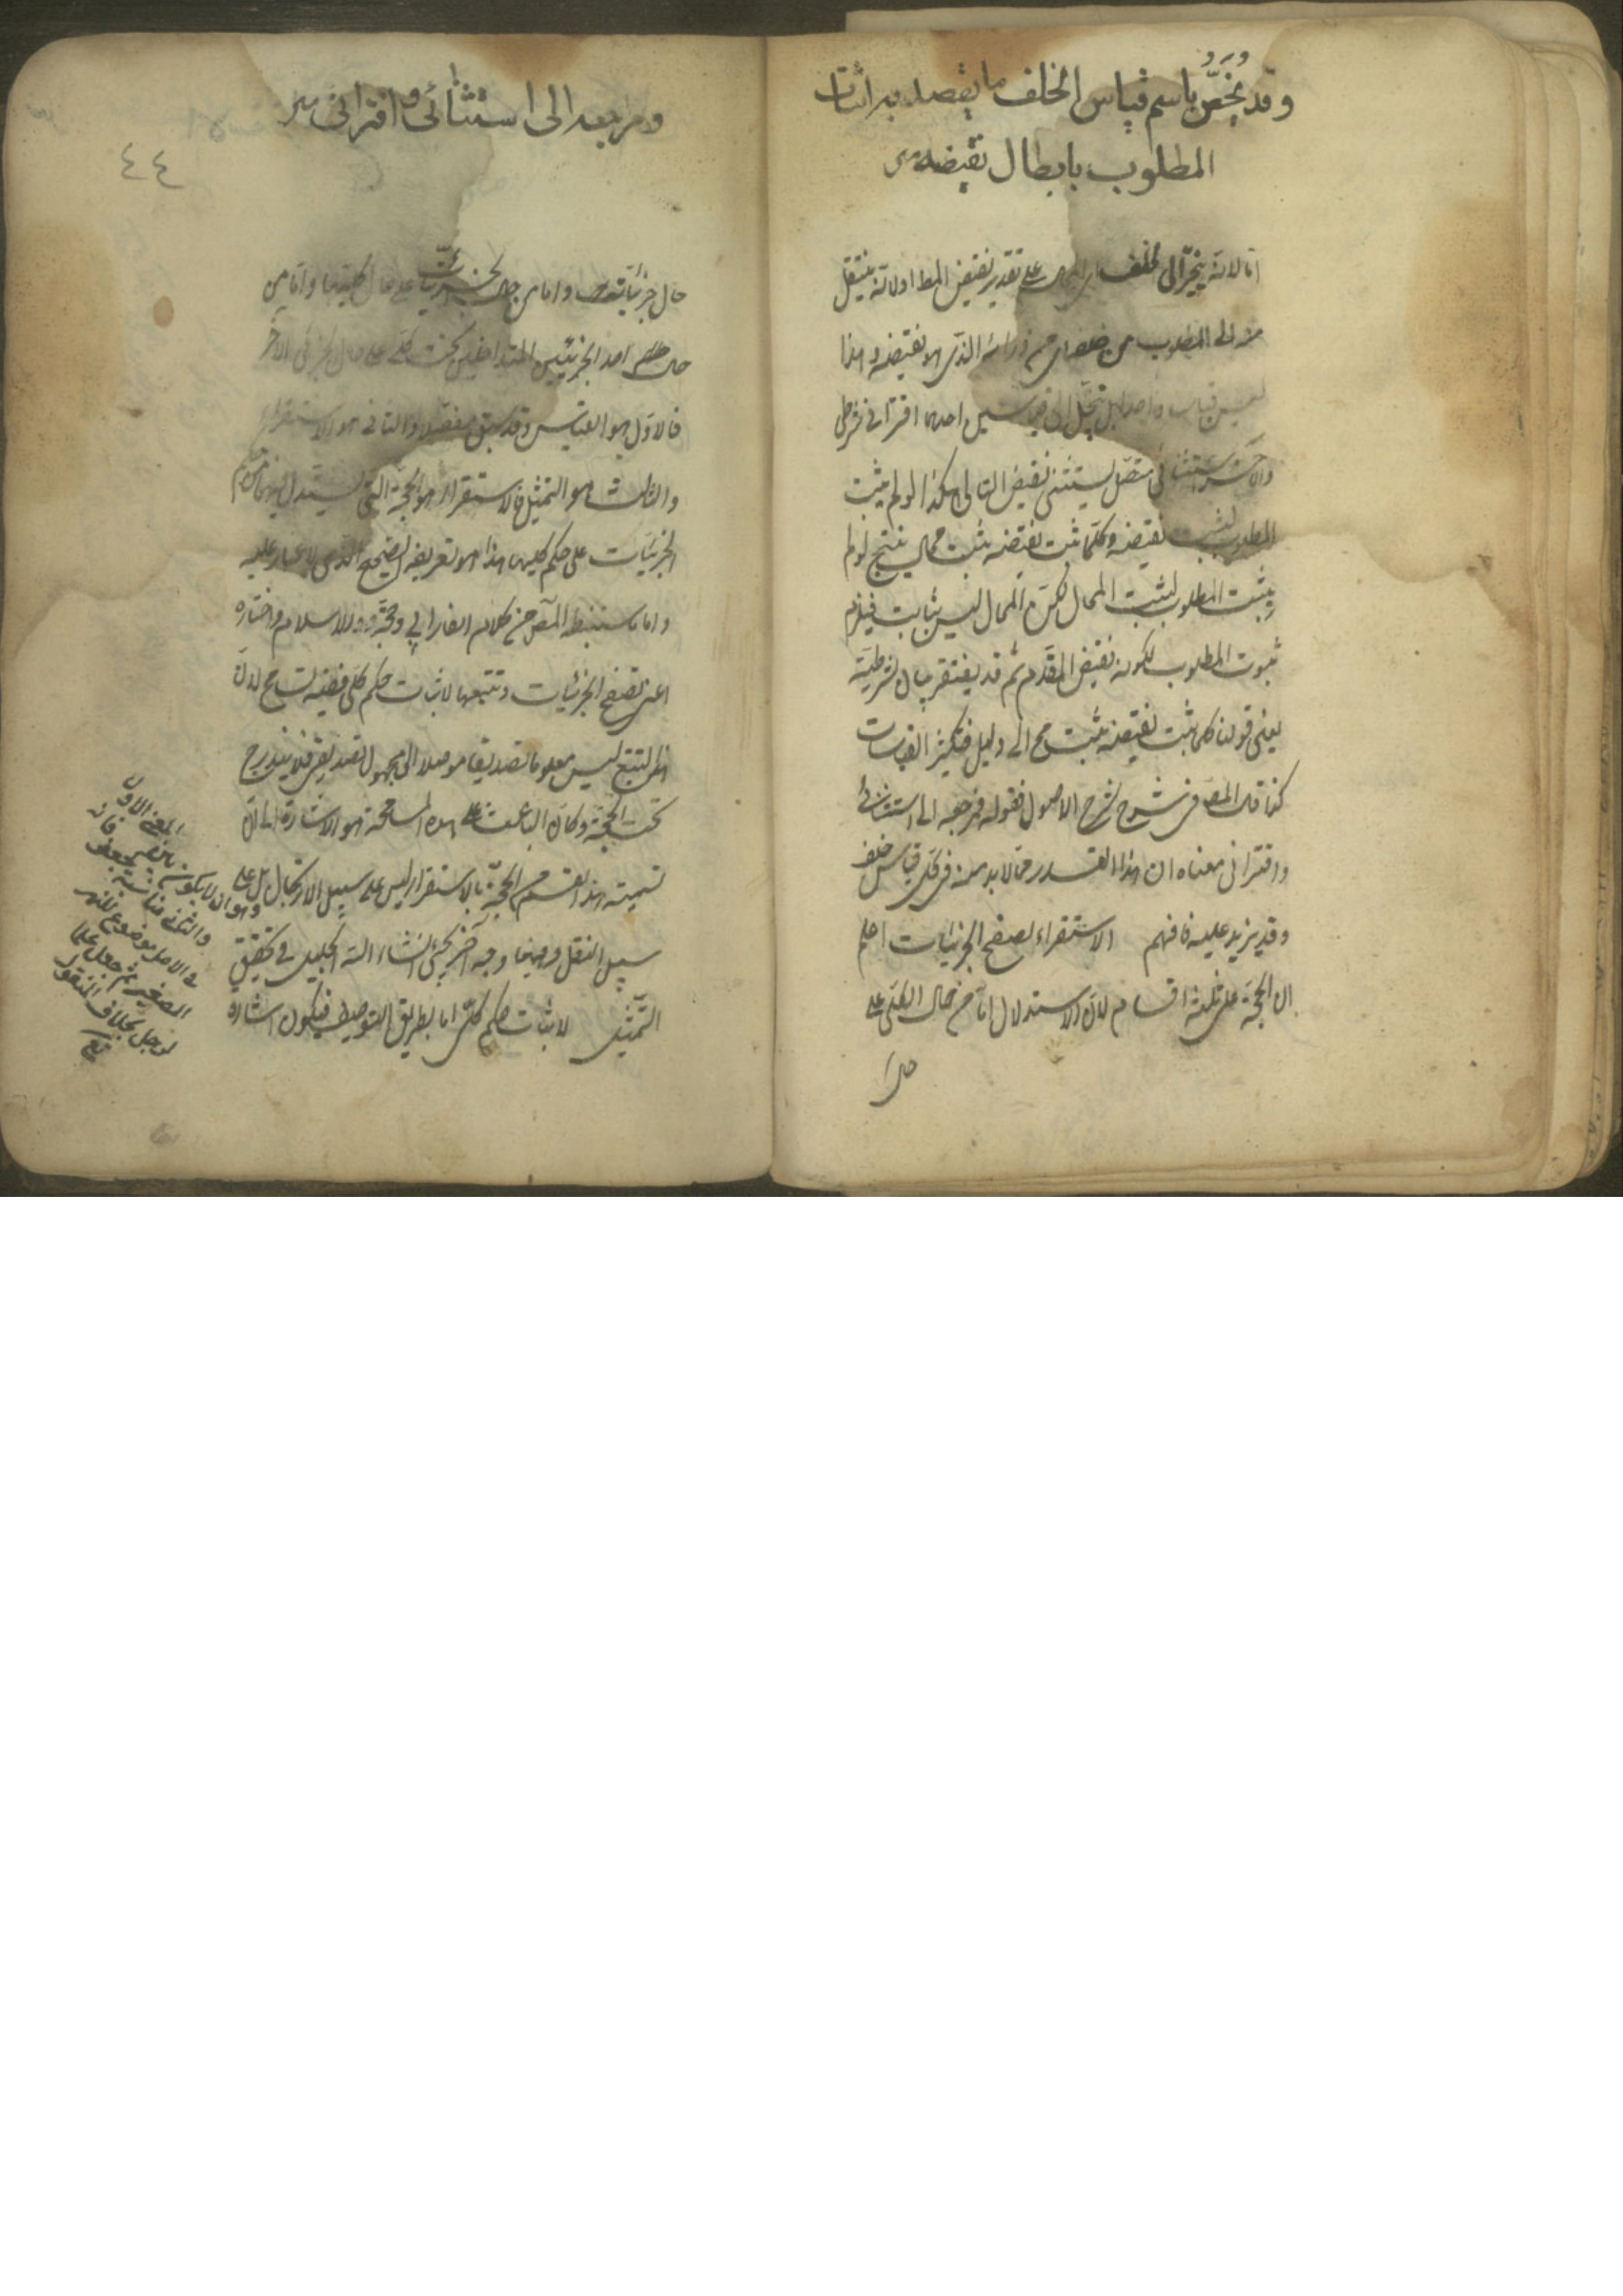 وقد يُخَصُّ باسم قياس الخلف ما يقصد به اثبات
المطلوب بابطال نقيضه
اما لانه ينجرّ الى الخلف اى المحال على تقدير نقيض المط او لانه ينتقل
منه الى المطلوب من خلفه اى من ورائه الذى هو نقيضه وهذا
ليس قياسا واحدا بل ينحل الى قياسين احدهما اقترانى شرطى
والآخر استثنائى متصل يستثنى نقيض التالى هكذا لو لم يثبت
المطلوب لثبت نقيضه وكلما ثبت نقيضه ثبت محال ينتج لو لم
يثبت المطلوب لثبت المحال لكن المحال ليس بثابت فيلزم
ثبوت المطلوب لكونه نقيض المقدم ثم قد يفتقر بيان الشرطية
يعنى قولنا كلما ثبت نقيضه ثبت مح الى دليل فتكثر القياسات
كذا قال المصـ فى شرح الاصول فقوله ومرجعه الى استثنائى
واقترانى معناه ان هذا القدر مما لا بد منه فى كل قياس خلف
وقد يزيد عليه فافهم الاستقراء تصفح الجزئيات اعلم
ان الحجة على ثلثة اقسام لان الاستدلال اما من حال الكلى على
حال
ومرجعه الى استثنائى و اقترانى
٤٤
حال جزئياته واما من حال الجزئيات على حال كليها واما من
حال احد الجزئيين المندرجين تحت كلى على حال الجزئى الآخر
فالاول هو القياس وقد سبق مفصلا والثانى هو الاستقراء
والثالث هو التمثيل فالاستقراء هو الحجة التى يستدل فيها من حكم
الجزئيات على حكم كليها هذا هو تعريفه الصحيح الذى لا غبار عليه
واما ما استنبطه المصـ من كلام الفارابى وحجة الاسلام واختاره
اعنى تصفح الجزئيات وتتبعها لاثبات حكم كلى ففيه تسامح لان
هذا التتبع ليس معلوما تصديقيا موصلا الى مجهول تصديقى فلا يندرج
تحت الحجة وكان الباعث على هذه المسامحة هو الاشارة الى ان
تسمية هذا القسم من الحجة بالاستقراء ليس على سبيل الارتجال بل على
سبيل النقل وههنا وجه آخر يجئ انشاء الله الجليل فى تحقيق
التمثيل لاثبات حكم كلى اما بطريق التوصيف فيكون اشارة
المعنى الاول
وهو ان لا يكون
والثانى مناسبة
فى الاصل موضوع للنهر
الصغير ثم جعل علما
لرجل بخلاف المنقول